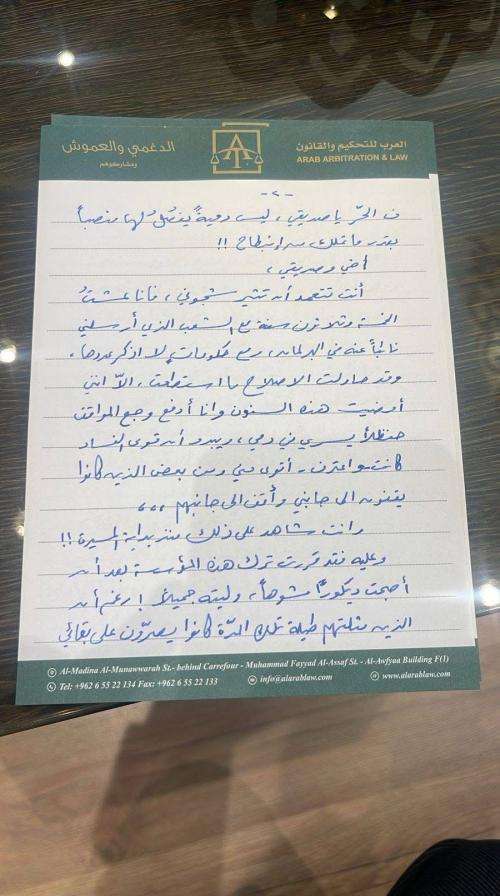 الدغمي والعموش
ومشاركوهم
العرب للتحكيم والقانون
ARAB ARBITRATION & LAW
- ٢ -
فـ الحرّ يا صديقي، ليس دميةً يفصّل لها منصباً
بقدر ما تملك من انبطاح !!
أخي وصديقي،
أنت تتعمد أن تثير شجوني، فأنا عشتُ
الخمسة وثلاثون سنة مع الشعب الذي أرسلني
نائباً عنه في البرلمان، ومع حكومات لا أذكر عددها،
وقد حاولت الاصلاح ما استطعت، الّا انني
أمضيت هذه السنون وانا أدفع وجع المواقف
حنظلاً يسري في دمي، ويبدو أن قوى الفساد
كانت - واعترف - أقوى مني ومن بعض الذين كانوا
يقفون الى جانبي وأقف الى جانبهم ،،،
وانت شاهد على ذلك منذ بداية المسيرة !!
وعليه فقد قررت ترك هذه المؤسسة بعد أن
أصبحت ديكوراً مشوهاً، وليته جميلاً ! رغم أن
الذين مثلتهم طيلة تلك المدّة كانوا يصرّون على بقائي
Al-Madina Al-Munawwarah St.- behind Carrefour - Muhammad Fayyad Al-Assaf St. - Al-Awfyaa Building F(1)
Tel: +962 6 55 22 134 Fax: +962 6 55 22 133 info@alarablaw.com www.alarablaw.com